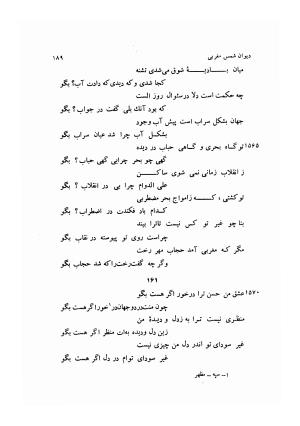 دیوان شمس مغربی
۱۸۹
میان بادیهٔ شوق می‌شدی تشنه
کجا شدی و که دیدی که دادت آب؟ بگو
چه حکمت است دلا درسئوال روز الست
که بود آنك بلی گفت در جواب؟ بگو
جهان بشکل سراب است پیش آب وجود
بشکل آب چرا شد عیان سراب بگو
۱۵۶۵ تو گاه بحری و گاهی حباب در دیده
گهی چو بحر چرایی گهی حباب؟ بگو
ز انقلاب زمانی نمی شوی ساکن
علی الدوام چرا یی در انقلاب؟ بگو
تو کشتی، که زامواج بحر مضطربی
کدام باد فکندت در اضطراب؟ بگو
بنا چو غیر تو کس نیست تاترا بیند
چراست روی تو پیوسته در نقاب بگو
مگر که مغربی آمد حجاب مهر رخت
وگر چه گفت‌رخت‌را که شد حجاب بگو
۱۶۱
۱۵۷۰ عشق من حسن ترا درخور اگر هست بگو
چون منت‌در دو جهان‌در ۱خور اگر هست بگو
منظری نیست ترا به زدل و دیدهٔ من
زین دل ودیده به‌ات منظر اگر هست بگو
غیر سودای تو اندر دل من چیزی نیست
غیر سودای توام در دل اگر هست بگو
۱- سپه - مطهر